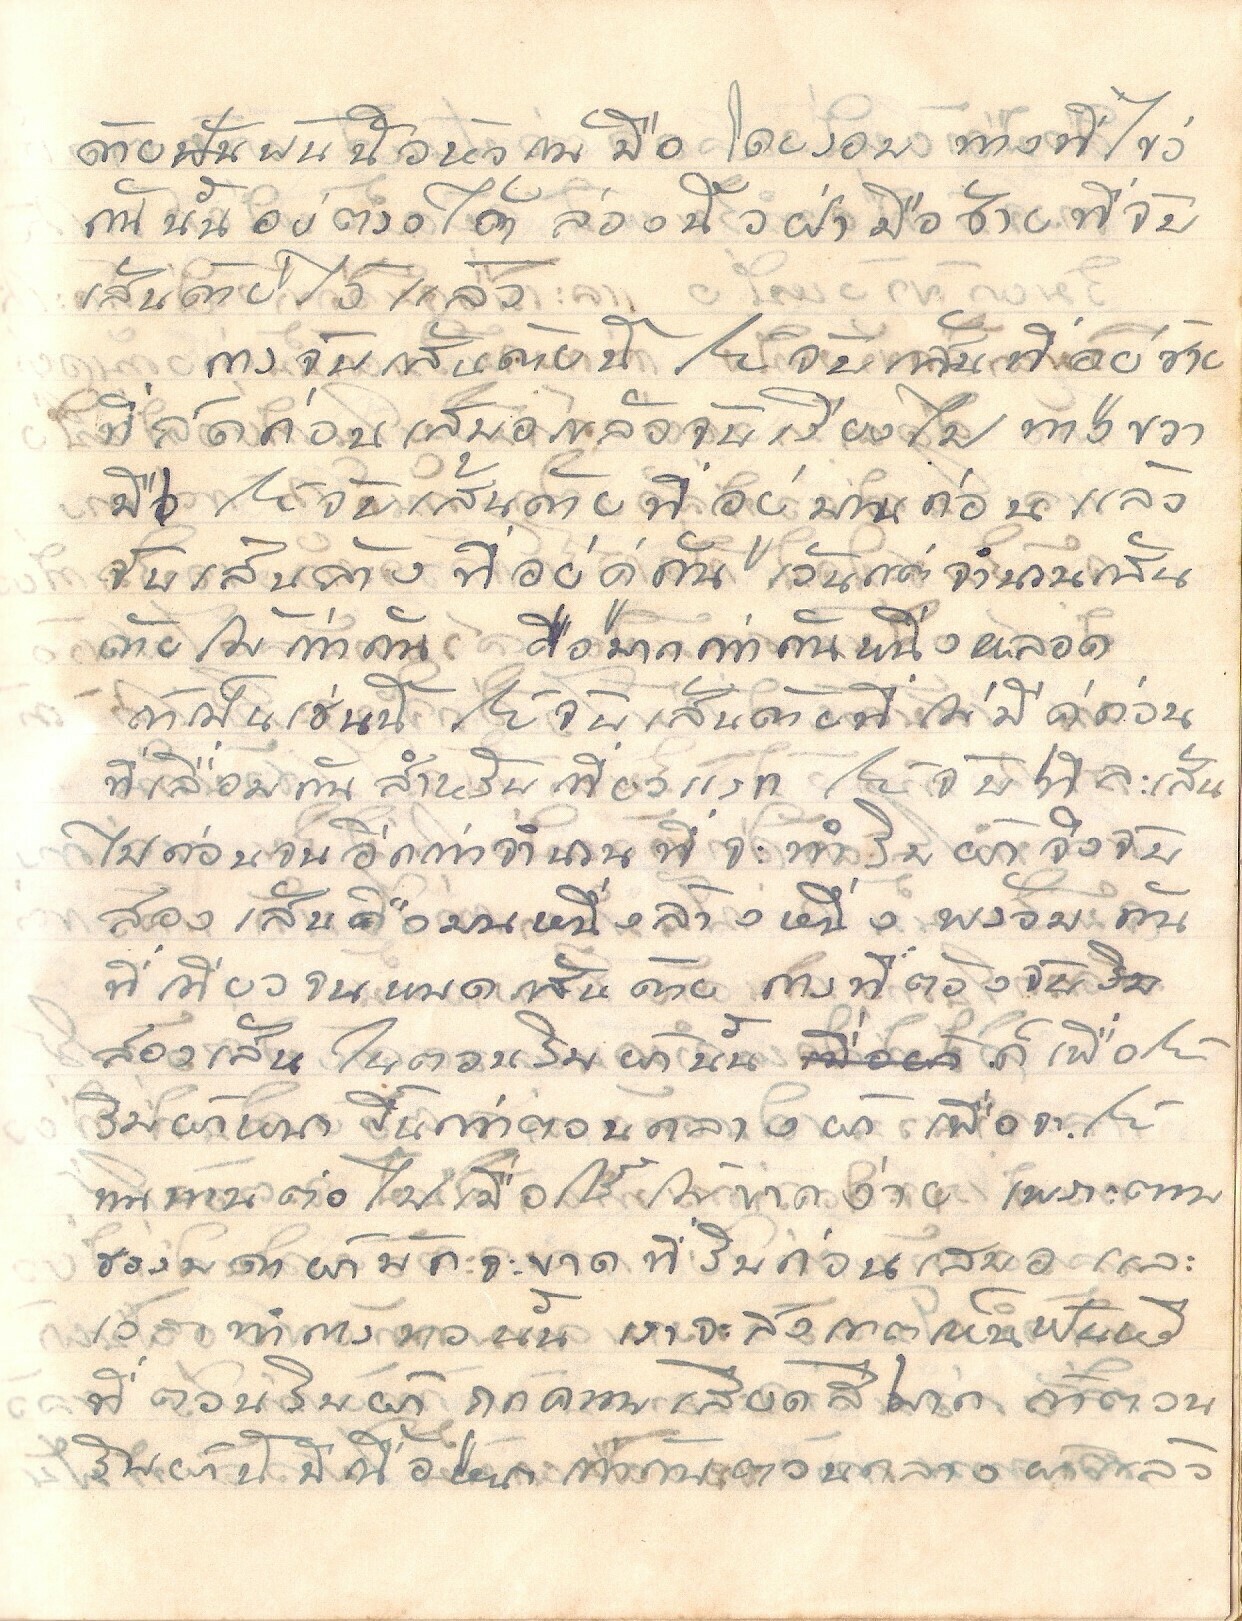 ด้ายนั้นพันนิ้วหัวแม่มือ โดยรอบ ทางที่ไขว้
กันนั้นอยู่ตรงใต้ ล่องนิ้วฝ่ามือซ้ายที่จับ
เส้นด้ายไว้แล้ว
การจับเส้นด้ายนี้ ให้จับเส้นที่อยู่ซ้าย
ที่สุดก่อนเสมอแล้วจับเรียงไป ทางขวา
มือ ให้จับเส้นด้ายที่อยู่บนก่อนแล้ว
จับเส้นล่าง ที่อยู่คู่กัน เว้นแต่จำนวนเส้น
ด้ายไม่เท่ากัน คือมากกว่ากันหนึ่งหลอด
ถ้าเป็นเช่นนี้ ให้จับเส้นด้ายที่ไม่มีคู่ก่อน
ที่เลื่อมกัน สำหรับเที่ยวแรก ให้จับทีละเส้น
ไปก่อนจนถึงเท่าจำนวนที่จะทำริมผ้าจึงจับ
สองเส้นคือบนหนึ่งล่างหนึ่ง พร้อมกัน
ทีเดียวจนหมดเส้นด้าย การที่ต้องจับริม
สองเส้น ในตอนริมผ้านั้น ก็เพื่อให้
ริมผ้าหนา ขึ้นกว่าตอนกลางผ้า เพื่อจะให้
ทนทานต่อไปเมื่อใช้ไม่ขาดง่าย เพราะตาม
ธรรมดาผ้ามักจะขาดที่ริมก่อนเสมอ และ
เวลาทำการทอนั้น เราจะสังเกตเห็นฟันหวี
ที่ตอนริมผ้า ถูกความเสียดสีมาก ถ้าตอน
ริมผ้านี้มีเนื้อแน่น เท่ากันตอนกลางผ้าแล้ว